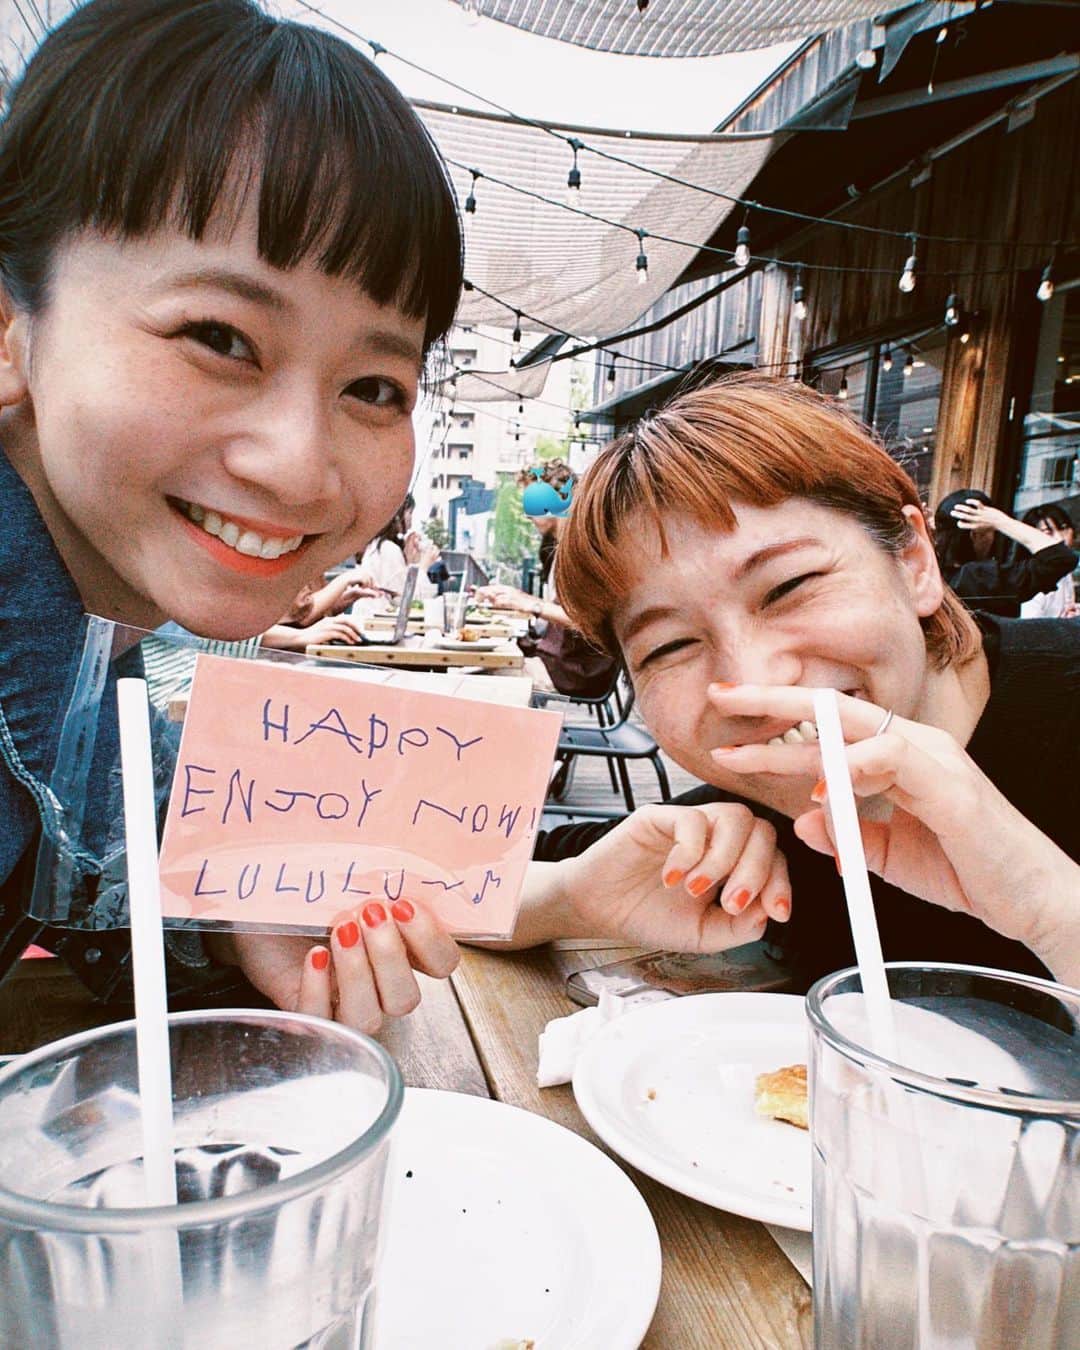 HAPPY
ENJOY NOW!
LULULU～♪